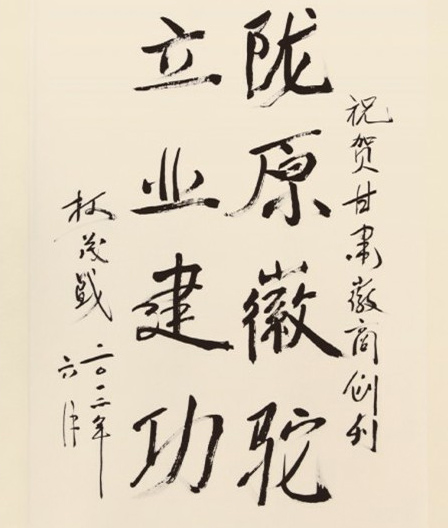 祝贺甘肃徽商创刊
陇原徽驼
立业建功
茂
二〇一二年
六月